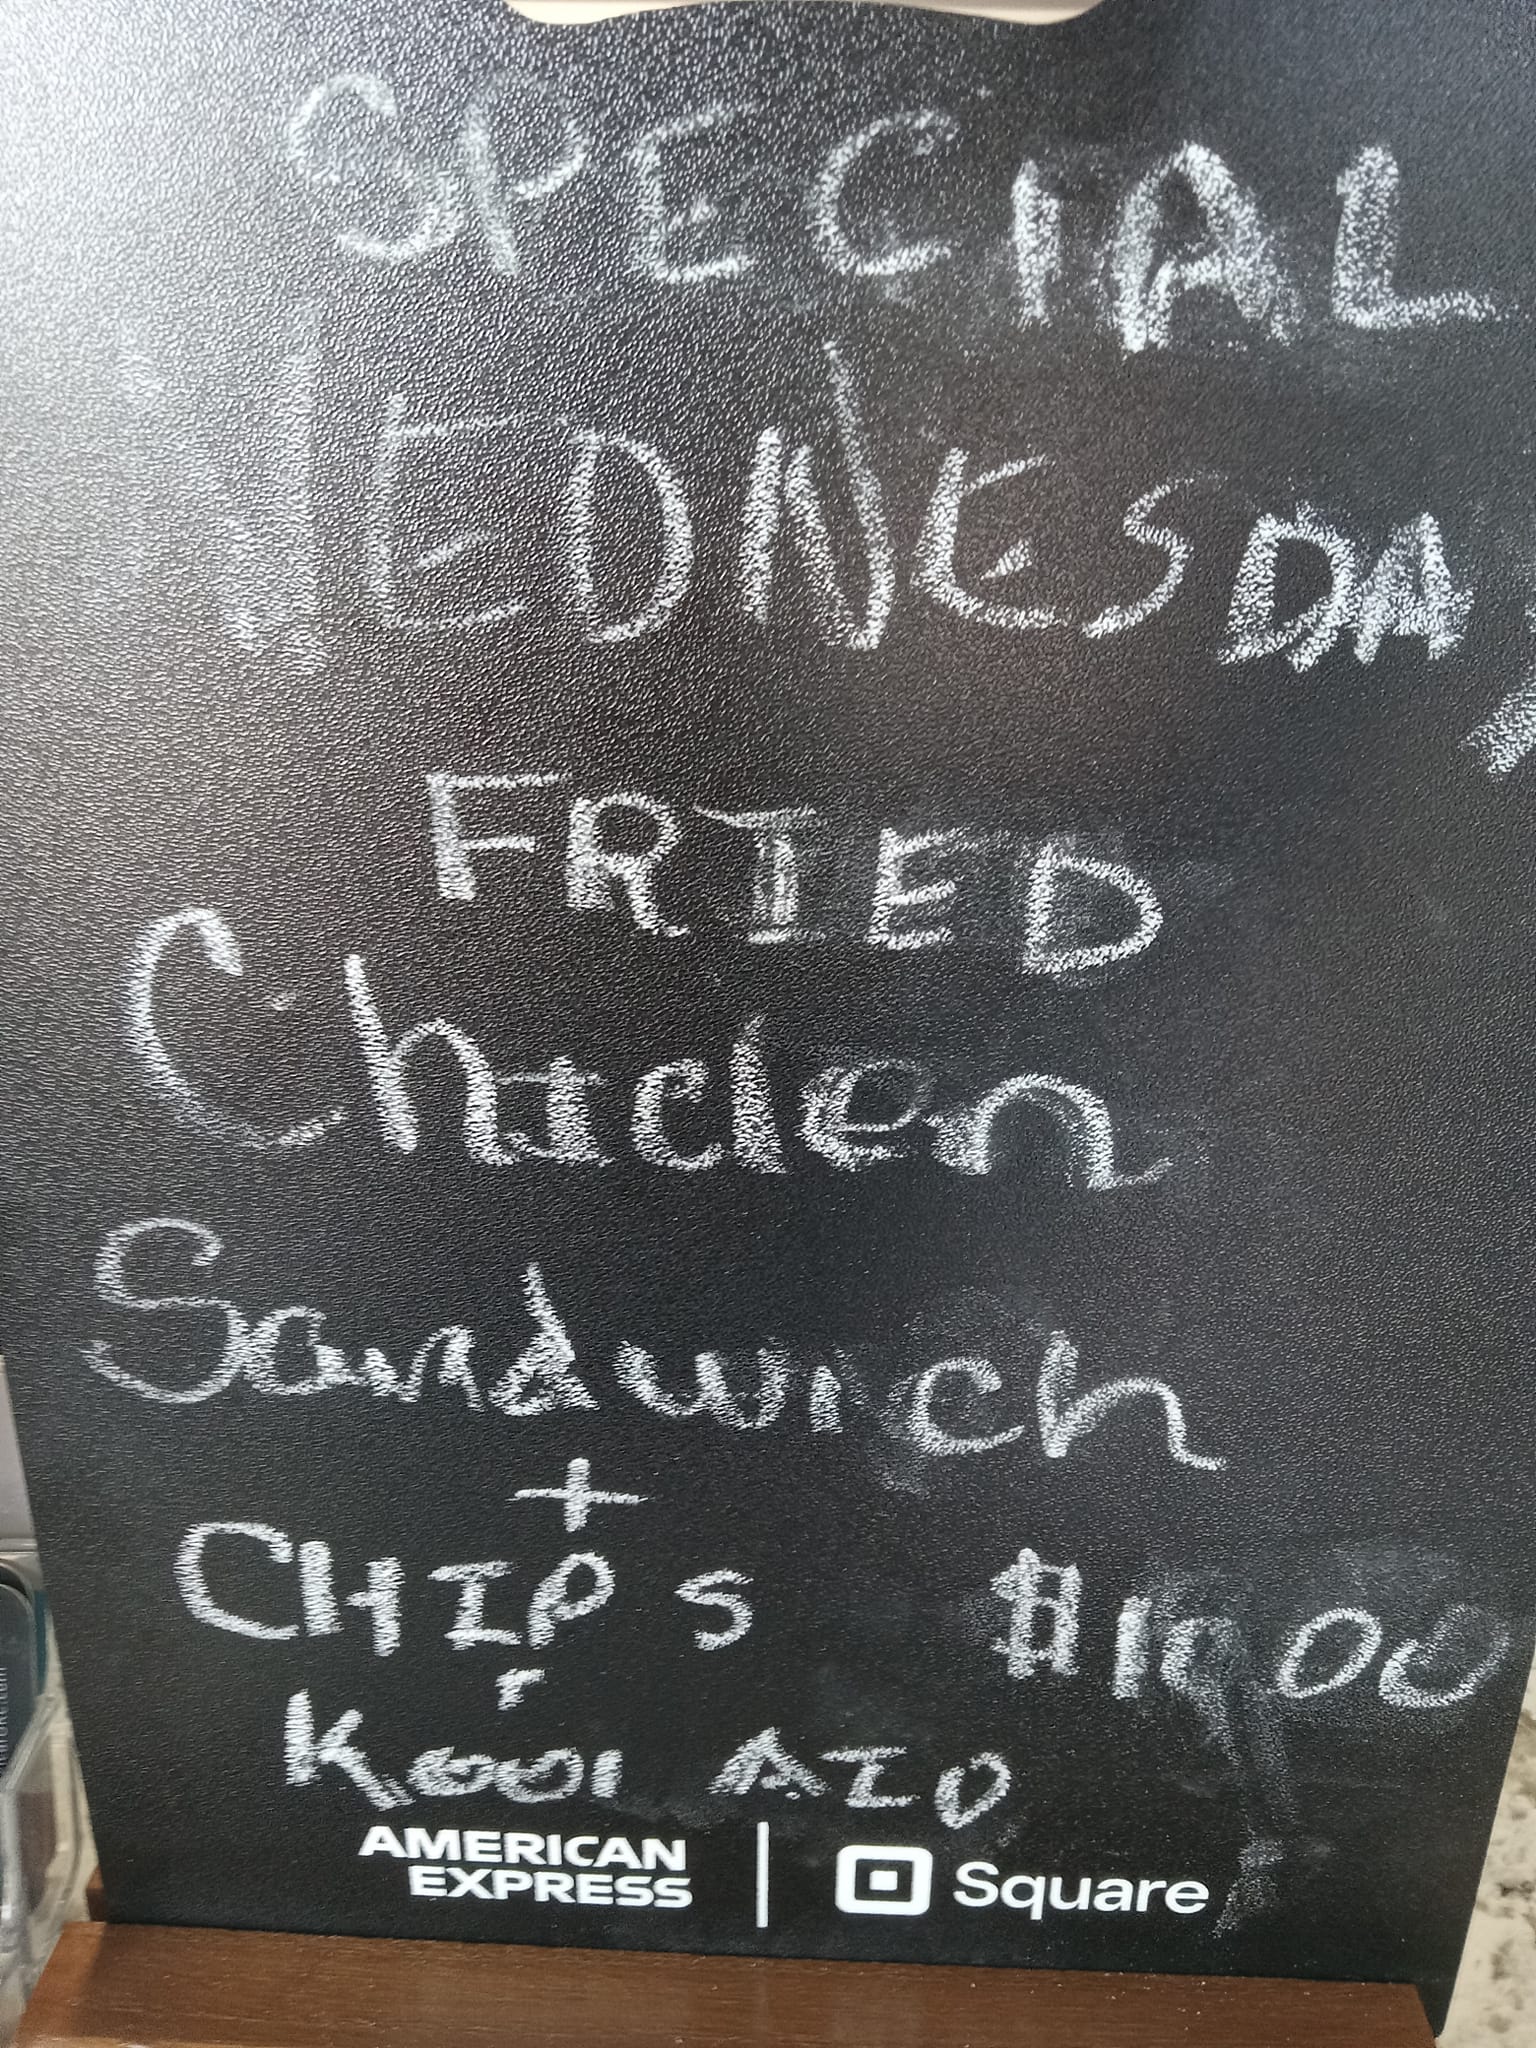 SPECIAL
WEDNESDAY
FRIED
Chicken
Sandwich
+
CHIPS $10.00
r
Kool AID
AMERICAN EXPRESS | Square